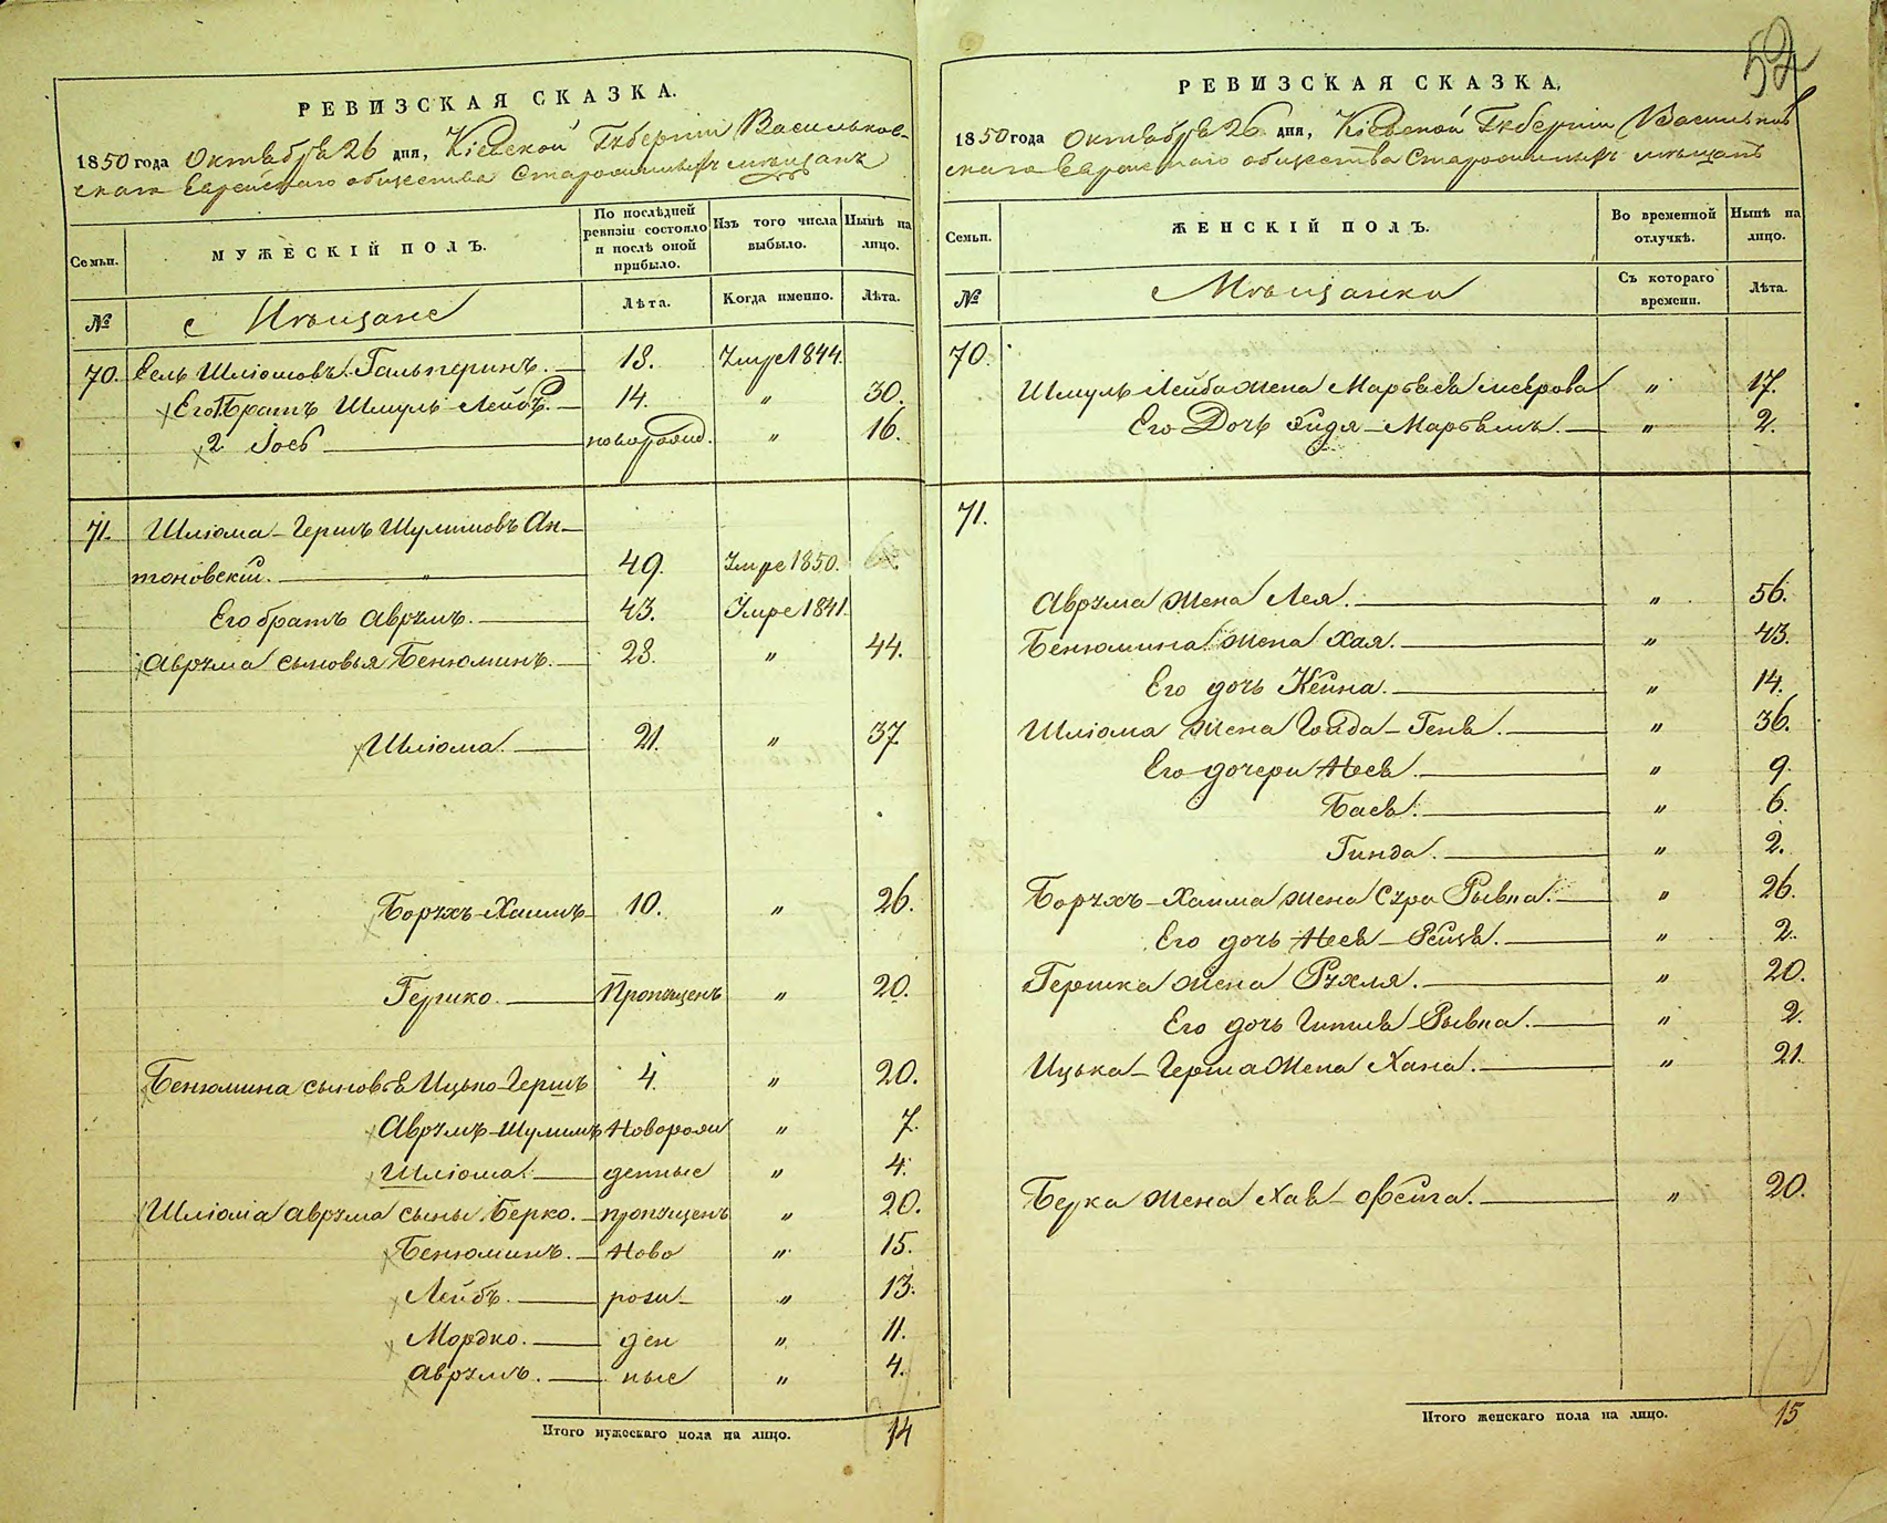 52
РЕВИЗСКАЯ СКАЗКА.
1850 года Октября 26 дня, Кіевской Губерніи Васильков-
скаго Еврейскаго общества Старожилыхъ мѣщанъ
Семьи.
МУЖЕСКІЙ ПОЛЪ.
По послѣдней ревизіи состояло и послѣ оной прибыло.
Изъ того числа выбыло.
Нынѣ на лицо.
№
Мѣщане
Лѣта.
Когда именно.
Лѣта.
70. Сель Шліомовъ Гальперинъ. 13. Умре 1844.
Его 1. Братъ Шмуль Лейбъ. 14. " 30.
2. Іось новорожд. " 16.
71. Шліома-Гершъ Шулимовъ Ан-
тоновскій. " 49. Умре 1850.
Его братъ Аврумъ. 43. Умре 1841.
Аврума сыновья Бенюминъ. 28. " 44.
Шліома. 21. " 37.
Борухъ-Хаимъ 10. " 26.
Гершко. Пропущенъ " 20.
Бенюмина сыновья Ицько-Гершъ 4. " 20.
Аврумъ-Шулимъ Новорож " 7.
Шліома. денные " 4.
Шліома Аврума сыны Берко. пропущенъ " 20.
Бенюминъ. Ново " 15.
Лейбъ. рож- " 13.
Мордко. ден " 11.
Аврумъ. ные " 4.
Итого мужескаго пола на лицо. 14
РЕВИЗСКАЯ СКАЗКА.
1850 года Октября 26 дня, Кіевской Губерніи Васильков
скаго Еврейскаго общества Старожилыхъ мѣщанъ
Семьи.
ЖЕНСКІЙ ПОЛЪ.
Во временной отлучкѣ.
Нынѣ на лицо.
№
Мѣщанки
Съ котораго времени.
Лѣта.
70.
Шмуль Лейба жена Марьяся Меерова " 17.
Его Дочь Фидя-Марьямъ. " 2.
71.
Аврума жена Лея. " 56.
Бенюмина жена Хая. " 43.
Его дочь Кейна. " 14.
Шліома жена Гольда-Геня. " 36.
Его дочери Неся. " 9.
Бася. " 6.
Гинда. " 2.
Борухъ-Хаима жена Сура Рывка. " 26.
Его дочь Неся-Рейзя. " 2.
Гершка жена Рухля. " 20.
Его дочь Гитля-Рывка. " 2.
Ицька-Герша жена Хана. " 21.
Берка жена Хая-Фейга. " 20.
Итого женскаго пола на лицо. 15